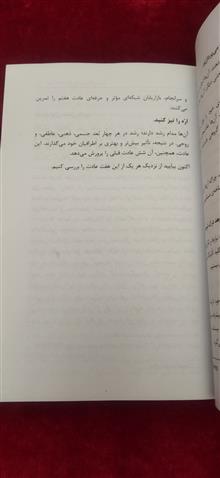 و سرانجام، بازاریابان شبکه‌ای مؤثر و حرفه‌ای عادت هفتم را تمرین
می‌کنند:
اره را تیز کنید.
آن‌ها مدام رشد دارند؛ رشد در هر چهار بُعد جسمی، ذهنی، عاطفی، و
روحی. در نتیجه، تأثیر بیش‌تر و بهتری بر اطرافیان خود می‌گذارند. این
عادت، همچنین، آن شش عادت قبلی را پرورش می‌دهد.
اکنون بیایید از نزدیک هر یک از این هفت عادت را بررسی کنیم.